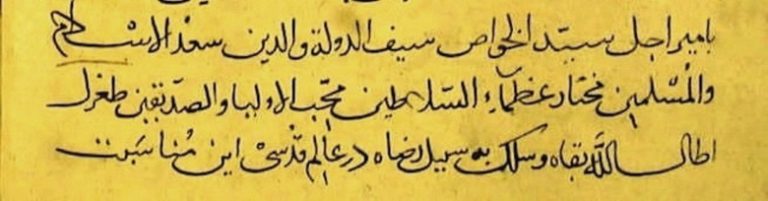 بامیر اجل سیّد الخواص سیف الدولة والدین سعد الاسلام
والمسلمین مختار عظماء السلاطین محبّ الاولیا والصدیقین طغرل
اطال اللّه بقاه وسلک به سبیل رضاه در عالم قدسی این مناسبت